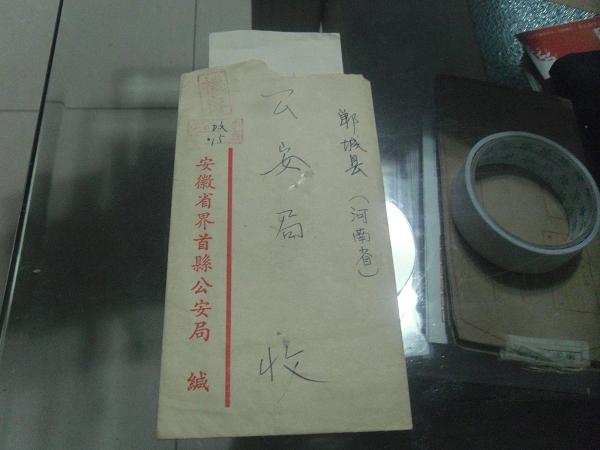 郸城县（河南省）
公安局 收
安徽省界首縣公安局 緘